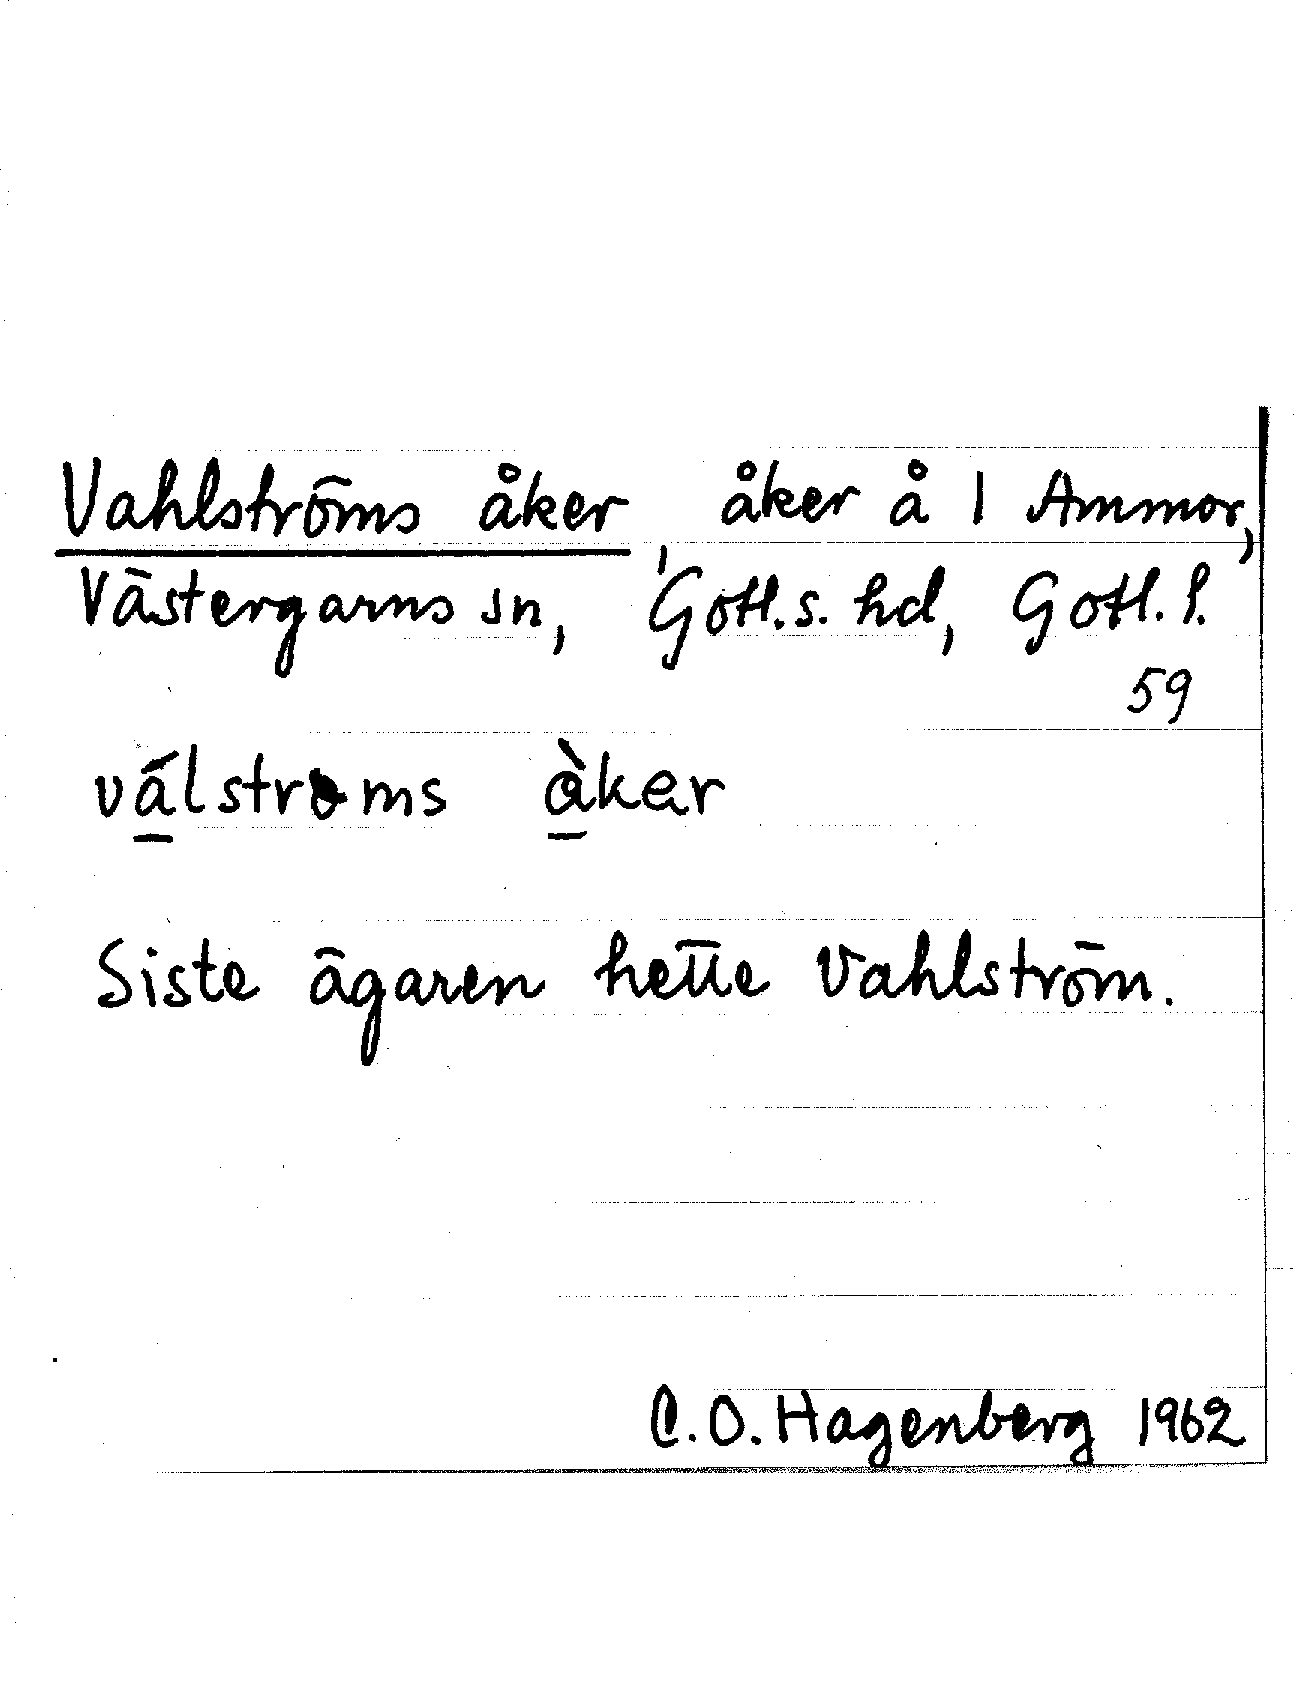 Vahlströms åker, åker å 1 Ammor,
Västergarns sn, Gotl.s. hd, Gotl. l.
59
vá̱lstroms à̱kar
Siste ägaren hette Vahlström.
C.O. Hagenberg 1962